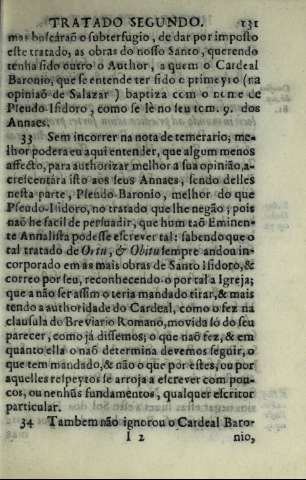 TRATADO SEGUNDO. 131
mas buscáraõ o subterfugio, de dar por imposto
este tratado, as obras do nosso Santo, querendo
tenha sido outro o Author, a quem o Cardeal
Baronio, que se entende ter sido o primeyro (na
opiniaõ de Salazar) baptiza com o nome de
Pseudo Isidoro, como se lè no seu tom. 9. dos
Annaes.
33 Sem incorrer na nota de temerario; me-
lhor podera eu aqui entender, que algum menos
affecto, para authorizar melhor a sua opinião, a-
crescentára isto aos seus Annaes, sendo delles
nesta parte, Pseudo-Baronio, melhor do que
Pseudo-Isidoro, no tratado que lhe negaõ; pois
naõ he facil de persuadir, que hum taõ Eminen-
te Annalista podesse escrever tal: sabendo que o
tal tratado de Ortu, & Obitu sempre andou in-
corporado em as mais obras de Santo Isidoro, &
correo por seu, reconhecendo-o por tal a Igreja;
que a não ser assim o teria mandado tirar, & mais
tendo a authoridade do Cardeal, como o fez na
clausula do Breviario Romano, movida só do seu
parecer, como já dissemos; o que naõ fez, & em
quanto ella o naõ determina devemos seguir, o
que tem mandado, & não o que por estes, ou por
aquelles respeytos se arroja a escrever com pou-
cos, ou nenhũs fundamentos, qualquer escritor
particular.
34 Tambem não ignorou o Cardeal Baro-
I 2 nio,